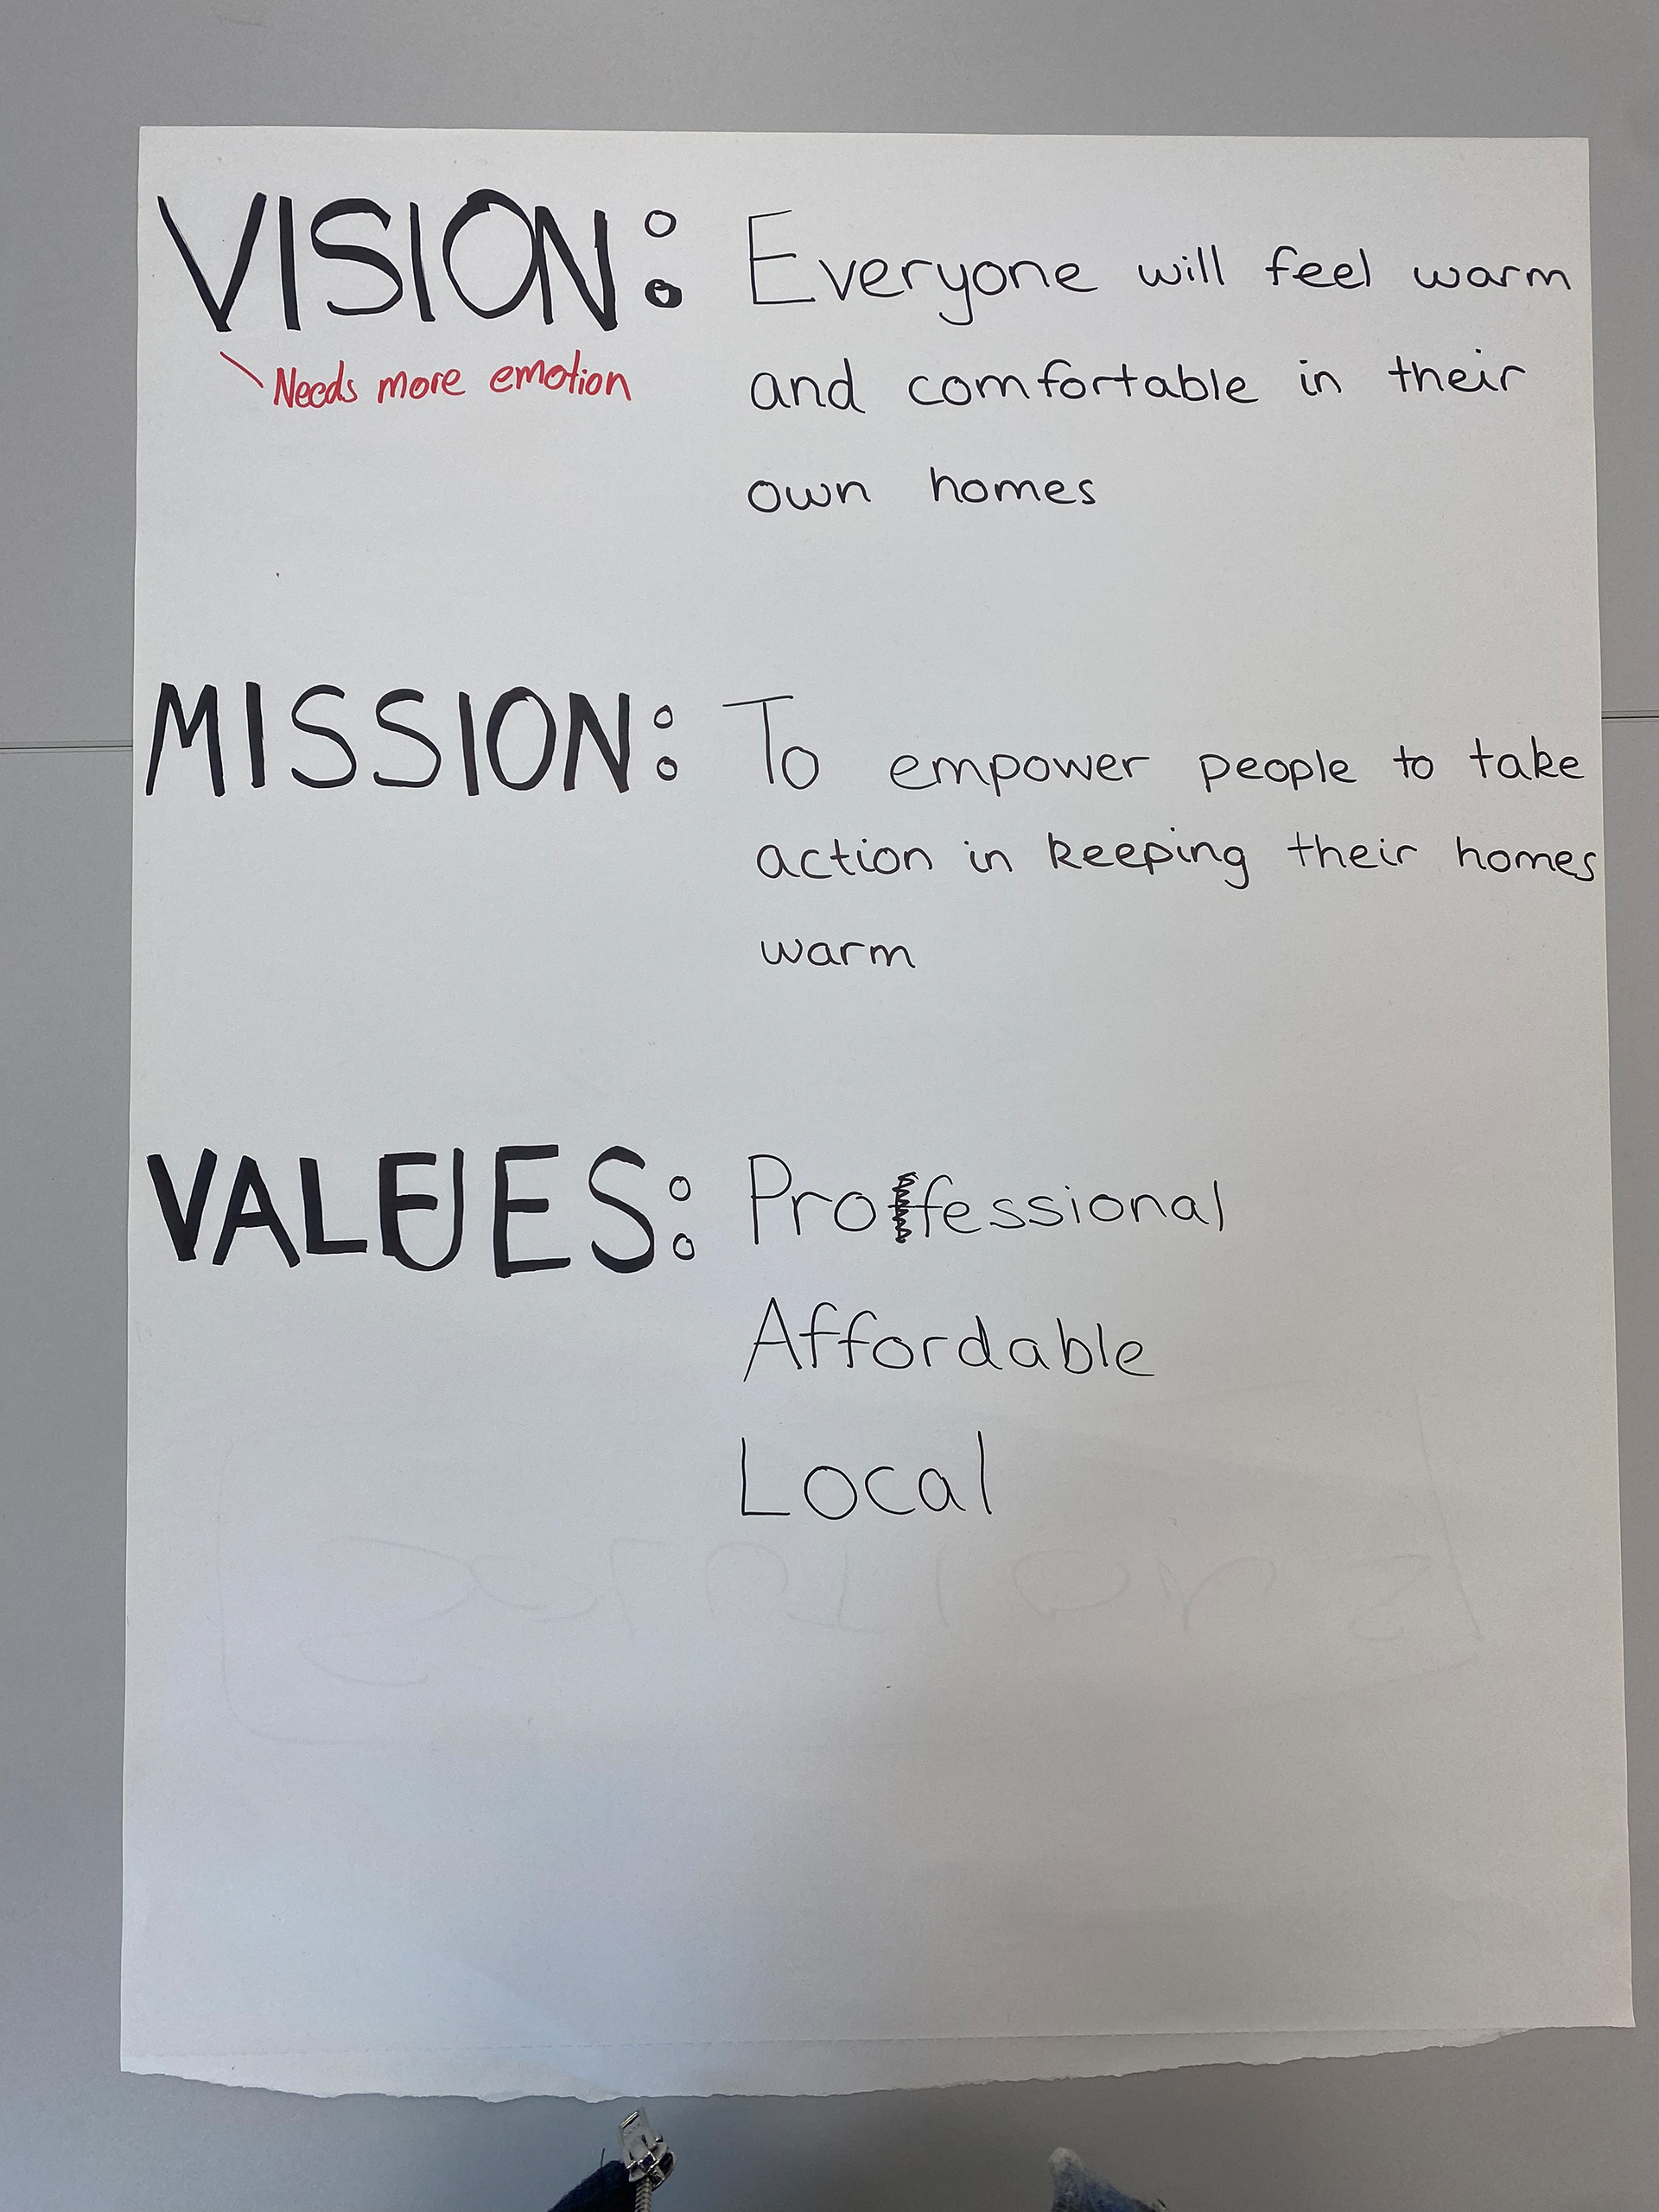 VISION: Everyone will feel warm
Needs more emotion
and comfortable in their
own homes
MISSION: To empower people to take
action in keeping their homes
warm
VALUES: Professional
Affordable
Local